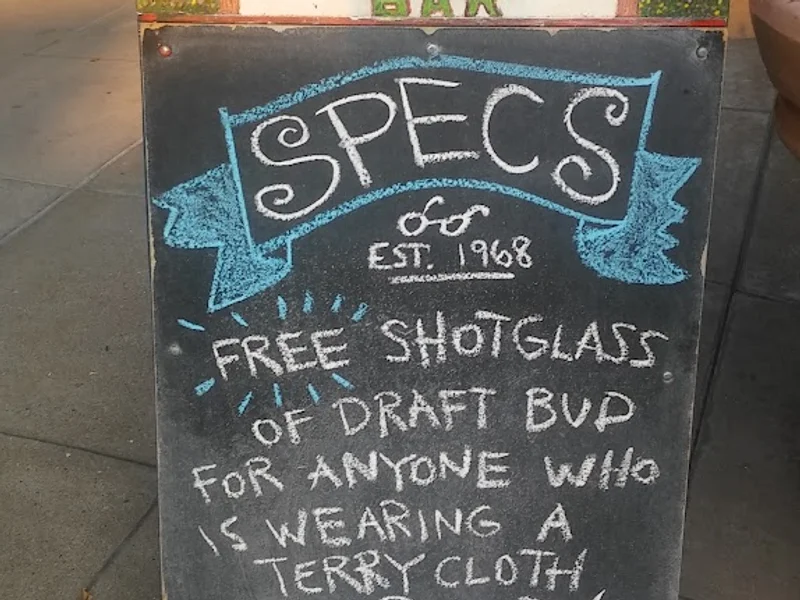 BAR
SPECS
EST. 1968
FREE SHOTGLASS
OF DRAFT BUD
FOR ANYONE WHO
IS WEARING A
TERRY CLOTH